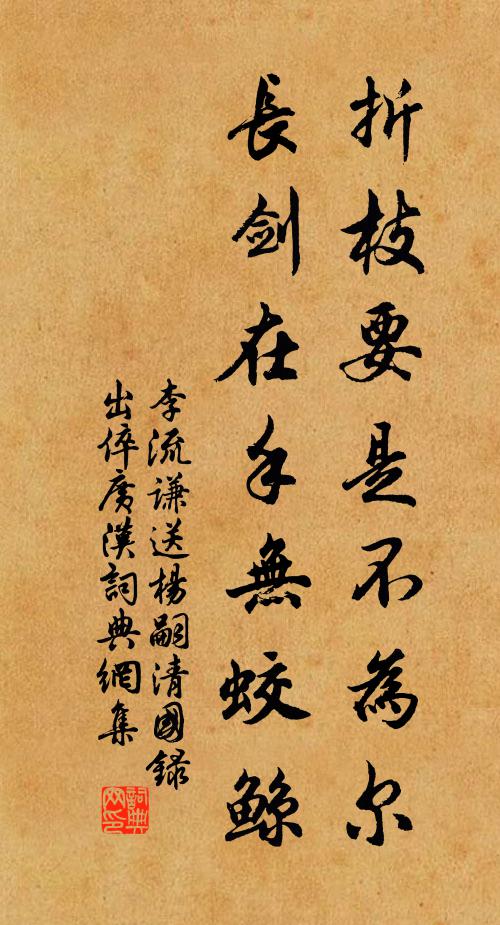 折枝要是不為尔
長剑在手無蛟鯨
李流谦送楊嗣清國録
出倅廣漢詞典網集
詞典
网印